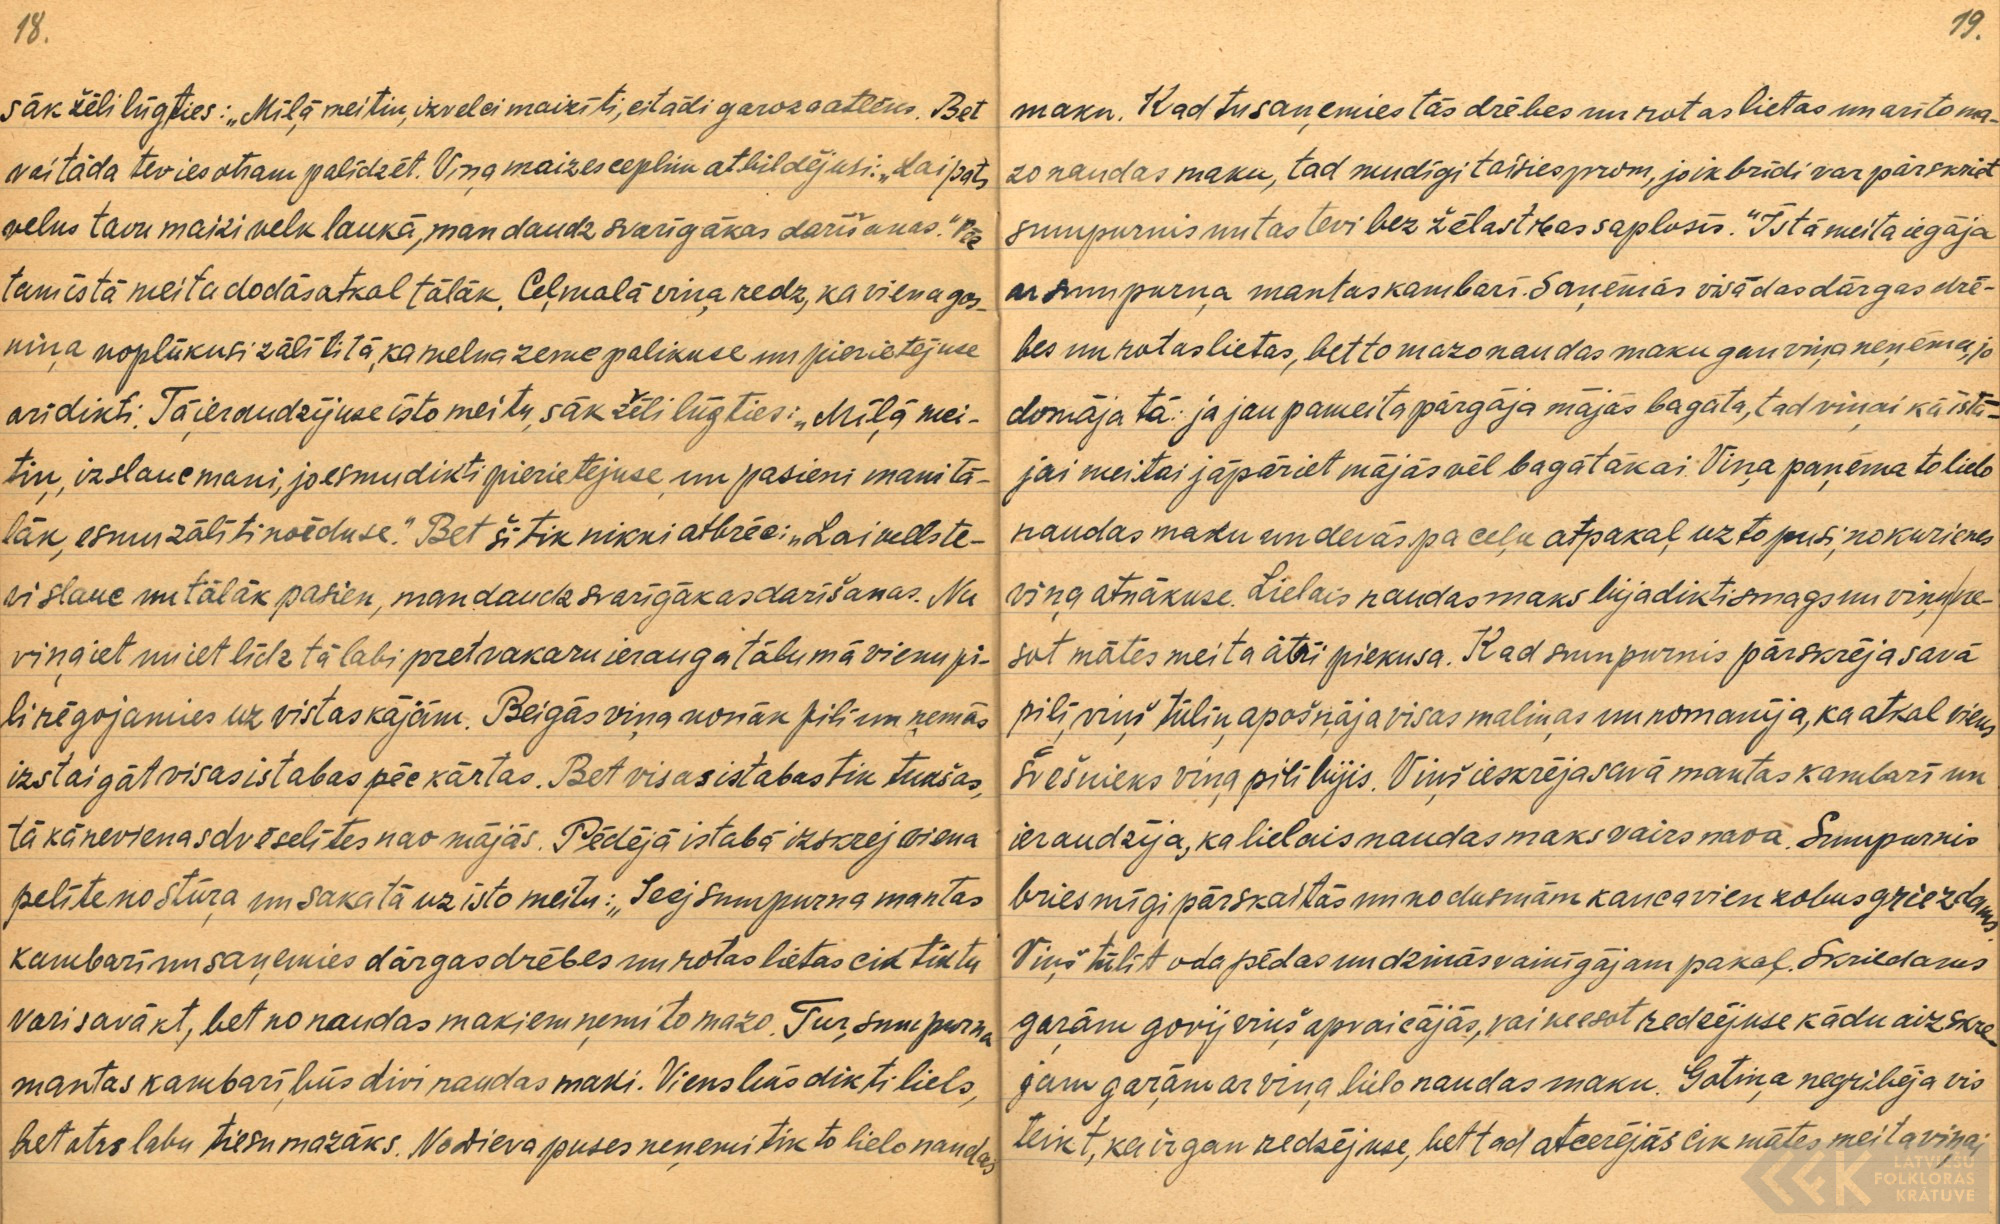 18.
sāk žēli lūgties: „Mīļā meitiņ, izvelci maizīti, citādi garoza atlēks. Bet
vai tāda tev ies otram palīdzēt. Viņa maizes ceplim atbildējusi: „Lai pats
velns tavu maizi velk laukā, man daudz svarīgākas darīšanas." Pēc
tam īstā meita dodās atkal tālāk. Ceļmalā viņa redz, ka viena gos-
niņa noplūkusi zālīti tā, ka melna zeme palikuse un pierietējuse
arī dikti. Tā ieraudzījuse īsto meitu, sāk žēli lūgties: „Mīļā mei-
tiņ, izslauc mani, jo esmu dikti pierietejuse un pasieni mani tā-
lāk, esmu zālīti noēduse." Bet šī tik nikni atbrēc: „Lai vells te-
vi slauc un tālāk pasien, man daudz svarīgākas darīšanas. Nu
viņa iet un iet līdz tā labi pret vakaru ierauga tālumā vienu pi-
li rēgojamies uz vistas kājām. Beigās viņa nonāk pilī un ņemās
izstaigāt visas istabas pēc kārtas. Bet visas istabas tik tukšas,
tā kā nevienas dvēselītes nav mājās. Pēdējā istabā izskrej viena
pelīte no stūŗa un saka tā uz īsto meitu: „Seej sumpurņa mantas
kambarī un saņemies dārgas drēbes un rotas lietas cik tik tu
vari savākt, bet no naudas makiem ņemi to mazo. Tur, sumpurņa
mantas kambarī, būs divi naudas maki. Viens būs dikti liels,
bet otrs labu tiesu mazāks. No Dieva puses neņemi tik to lielo naudas
19.
maku. Kad tu saņemies tās drēbes un rotas lietas un arī to ma-
zo naudas maku, tad mudīgi taisies prom, jo ik brīdi var pārskriet
sumpurnis un tas tevi bez žēlastības saplosīs." Īstā meita iegāja
ar sumpurņa mantas kambarī. Saņēmās visādas dārgas drē-
bes un rotas lietas, bet to mazo naudas maku gan viņa neņēma, jo
domāja tā: ja jau pameita pārgāja mājās bagāta, tad viņai kā īsta-
jai meitai jāpāriet mājās vēl bagātākai. Viņa paņēma to lielo
naudas maku un devās pa ceļu atpakaļ uz to pusi, no kurienes
viņa atnākuse. Lielais naudas maks bija dikti smags un viņu ne-
sot mātes meita ātri piekusa. Kad sumpurnis pārskrēja savā
pilī, viņš tūliņ apošņāja visas maliņas un nomanīja, ka atkal viens
svešnieks viņa pilī bijis. Viņš ieskrēja savā mantas kambarī un
ieraudzīja, ka lielais naudas maks vairs nava. Sumpurnis
briesmīgi pārskaitās un no dusmām kauca vien zobus griezdams.
Viņš tūlīt oda pēdas un dzinās vainīgājam pakaļ. Skriedams
gaŗām govij viņš apvaicājās, vai neesot redzējuse kādu aizskre-
jam gaŗām ar viņa lielo naudas maku. Gotiņa negribēja vis
teikt, ka ir gan redzējuse, bet tad atcerējās cik mātes meita viņai
LATVIEŠU
FOLKLORAS
KRĀTUVE